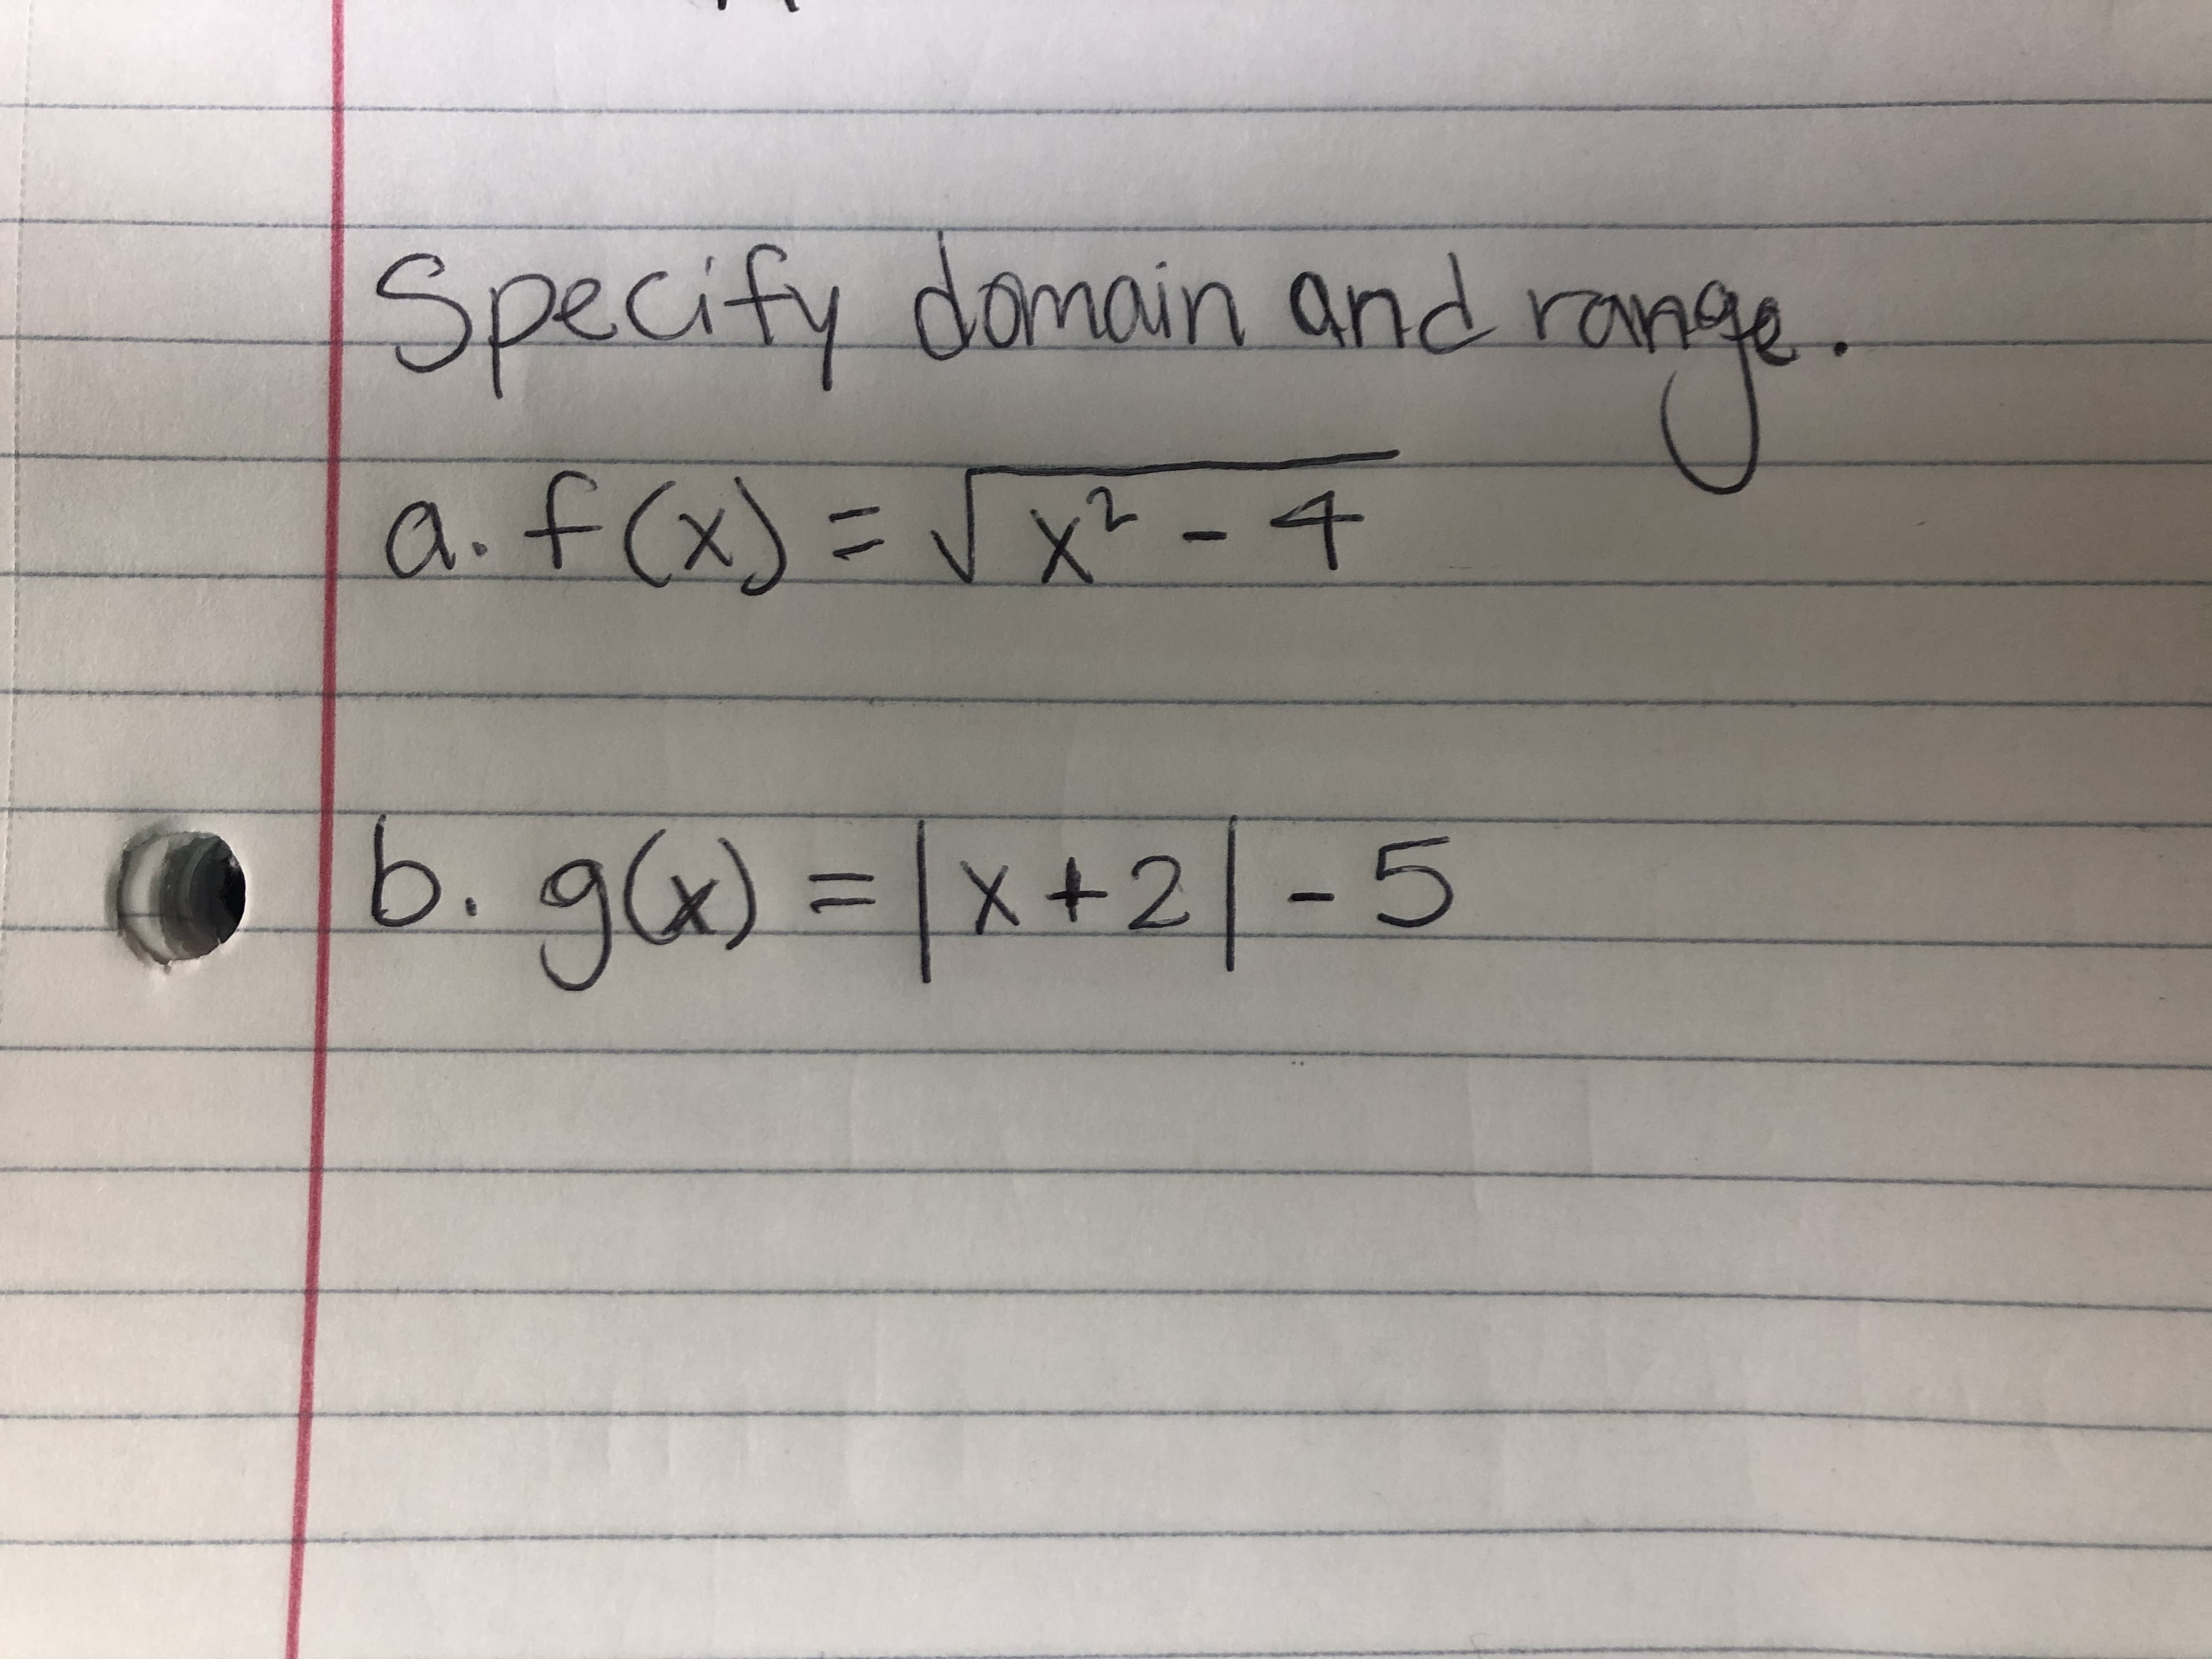 Specify domain and range.
a. f(x) = √x² - 4
b. g(x) = |x+2| - 5